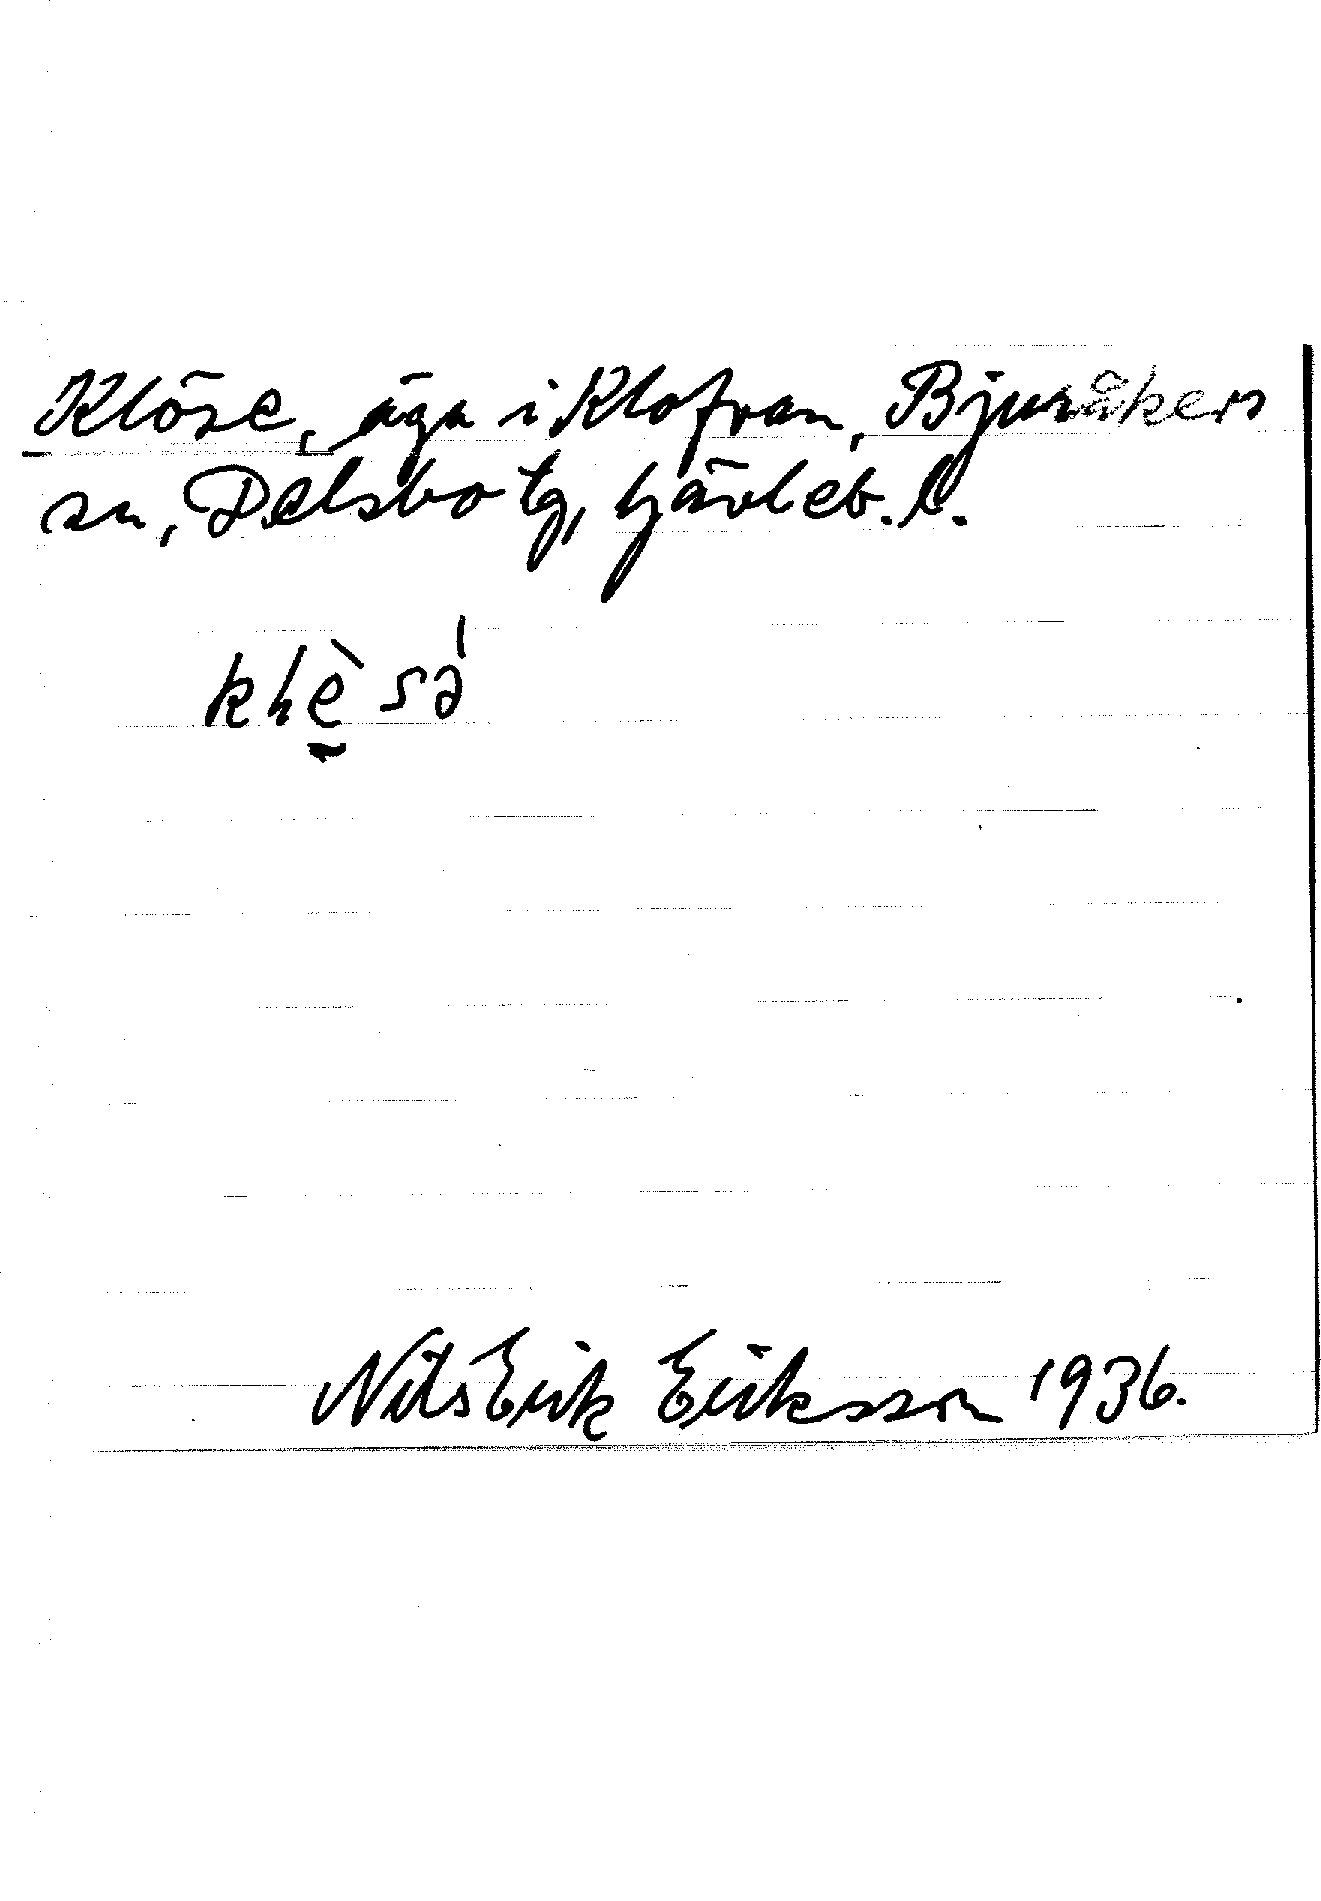 Klöse, äga i Klofran, Bjuråkers
sn, Delsbo tg, Gävleb. l.
Nils Erik Eriksson 1936.